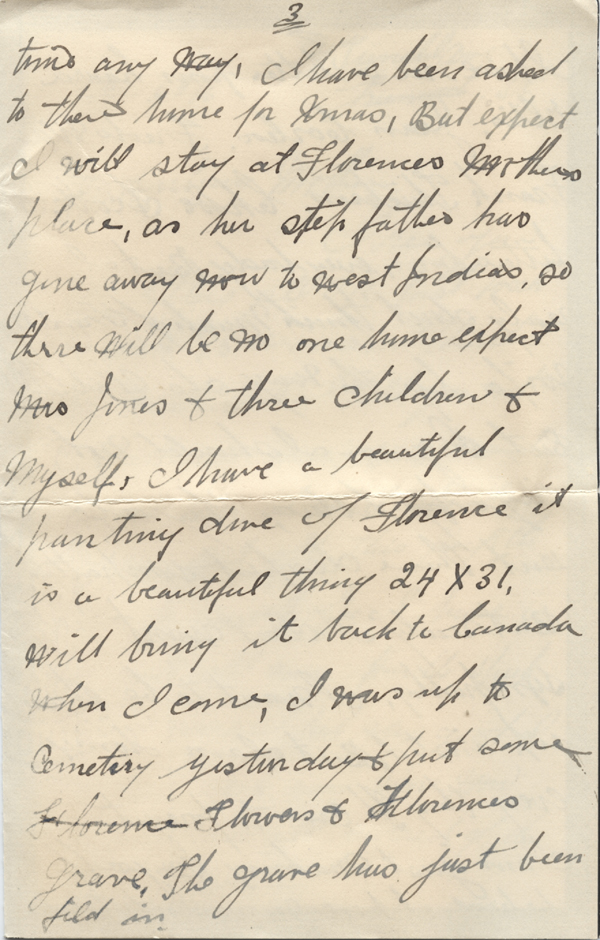 3
time any way, I have been asked
to there home for Xmas, But expect
I will stay at Florences Mothers
place, as her step father has
gone away now to west Indias, so
there will be no one home expect
Mrs Jones & three children &
Myself, I have a beautiful
painting done of Florence it
is a beautiful thing 24 X 31,
will bring it back to Canada
when I come, I was up to
Cemetery yesterday & put some
Florence Flowers & Florences
grave, The grave has just been
fild in